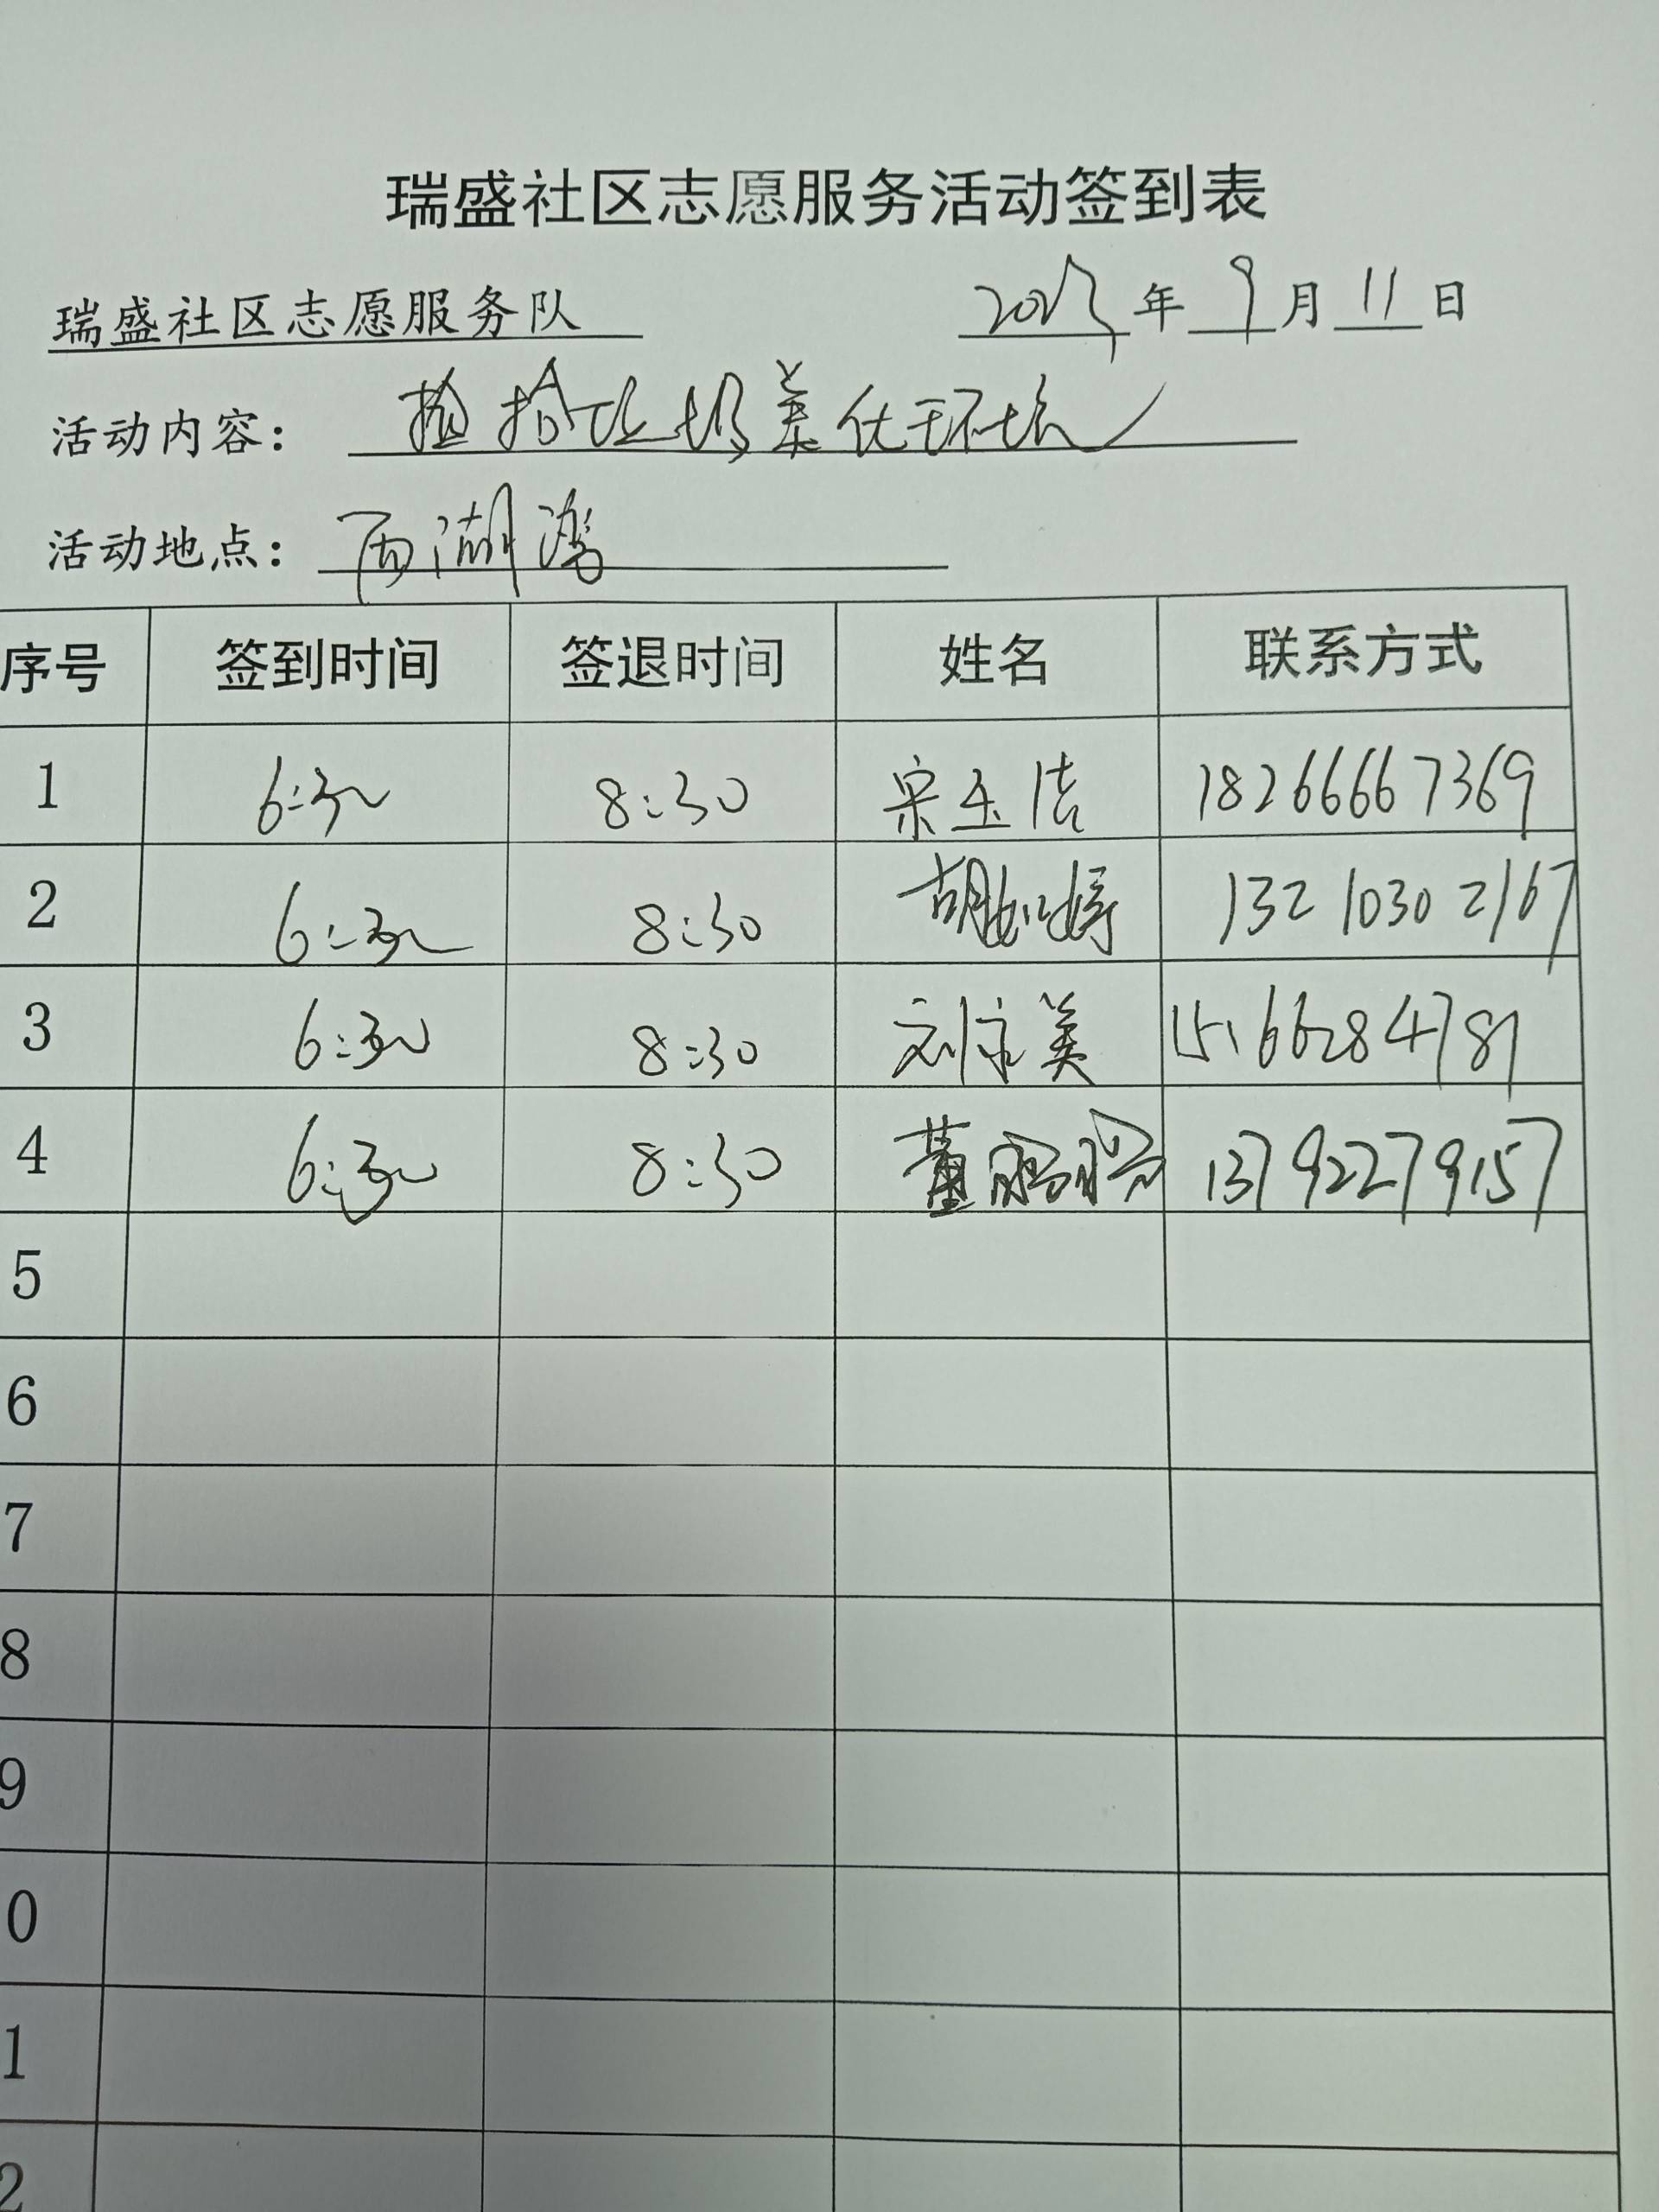 瑞盛社区志愿服务活动签到表
瑞盛社区志愿服务队 2023年9月11日
活动内容： 捡拾垃圾美化环境
活动地点： 西湖湾
序号 签到时间 签退时间 姓名 联系方式
1 6:30 8:30 宋玉洁 18266667369
2 6:30 8:30 胡如婷 13210302167
3 6:30 8:30 刘美 15166284781
4 6:30 8:30 董 13792279157
5
6
7
8
9
0
1
2